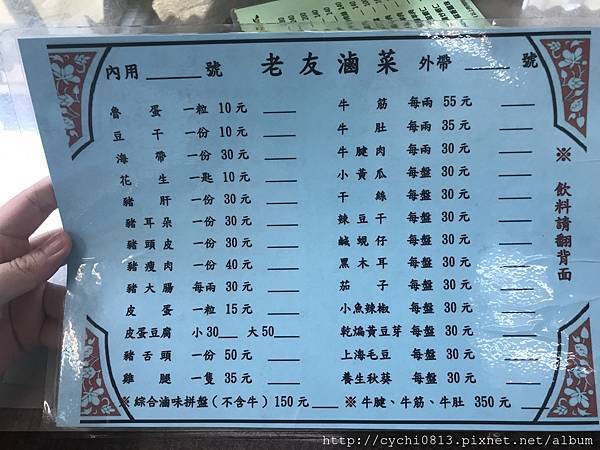 內用_____號 老友滷菜 外帶_____號
魯蛋 一粒 10元 ____
豆干 一份 10元 ____
海帶 一份 30元 ____
花生 一匙 10元 ____
豬肝 一份 30元 ____
豬耳朵 一份 30元 ____
豬頭皮 一份 30元 ____
豬瘦肉 一份 40元 ____
豬大腸 每兩 30元 ____
皮蛋 一粒 15元 ____
皮蛋豆腐 小30___ 大50____
豬舌頭 一份 50元 ____
雞腿 一隻 35元 ____
牛筋 每兩 55元 ____
牛肚 每兩 35元 ____
牛腱肉 每盤 30元 ____
小黃瓜 每盤 30元 ____
干絲 每盤 30元 ____
辣豆干 每盤 30元 ____
鹹蜆仔 每盤 30元 ____
黑木耳 每盤 30元 ____
茄子 每盤 30元 ____
小魚辣椒 每盤 30元 ____
乾煸黃豆芽 每盤 30元 ____
上海毛豆 每盤 30元 ____
養生秋葵 每盤 30元 ____
※綜合滷味拼盤(不含牛)150元____ ※牛腱、牛筋、牛肚 350元____
※飲料請翻背面
http://cychi0813.pixnet.net/album